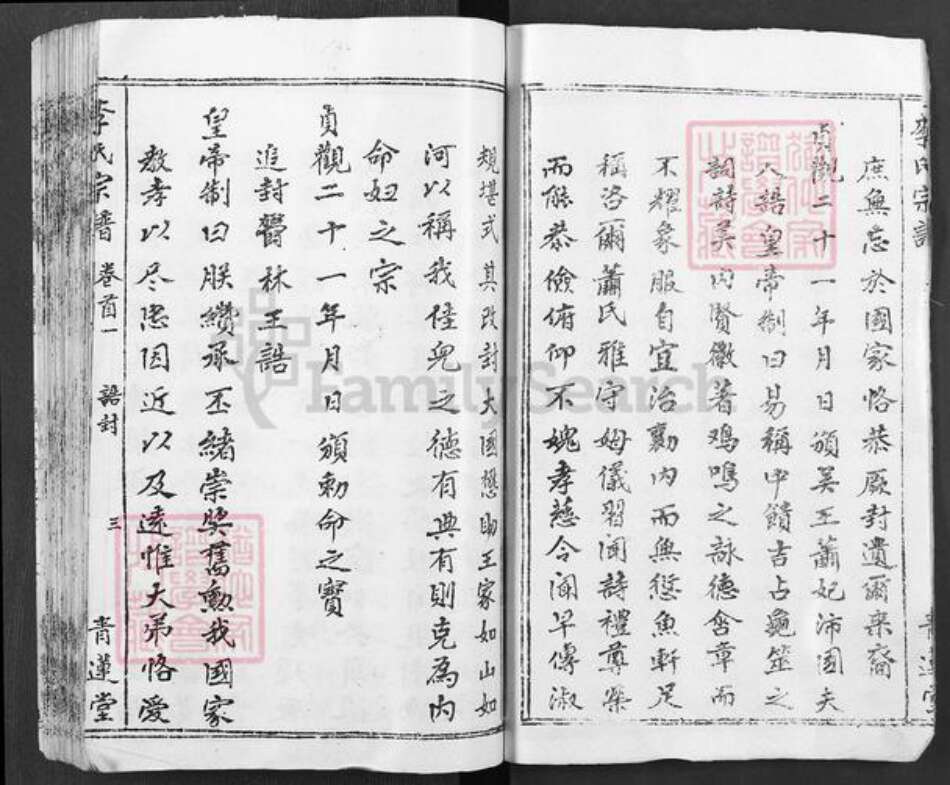 庶無忘於國家恪恭厥封遺爾来裔
貞觀二十一年月日頒吴王蕭妃沛國夫
人誥皇帝制曰易稱中饋吉占龜筮之
詞詩美内賢徽著鸡鳴之詠德含章而
不耀象服自宜治襄内而無愆魚軒足
稱洛爾蕭氏雅守姆儀習闻詩禮尊榮
而能恭儉俯仰不媿孝慈令闻早傳淑
規堪式其改封大國懋助王家如山如
河以稱我陸兒之德有典有則克為内
命妇之宗
貞觀二十一年月日頒勅命之寳
追封鬱林王誥
皇帝制曰朕纘承丕緒崇奨舊勲我國家
敖孝以尽忠因近以及遠惟大弟恪爱
李氏宗譜 卷首一 誥封 三 青蓮堂
FamilySearch